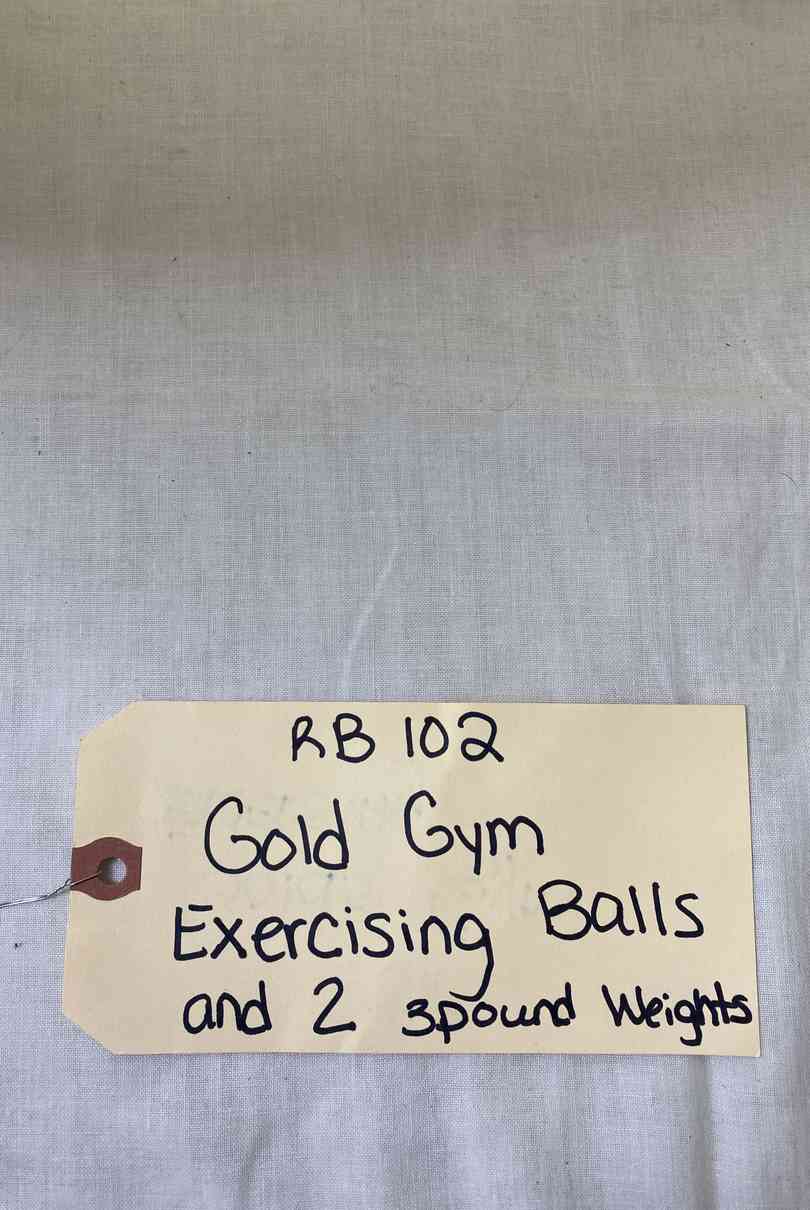 RB 102
Gold Gym
Exercising Balls
and 2 3pound Weights